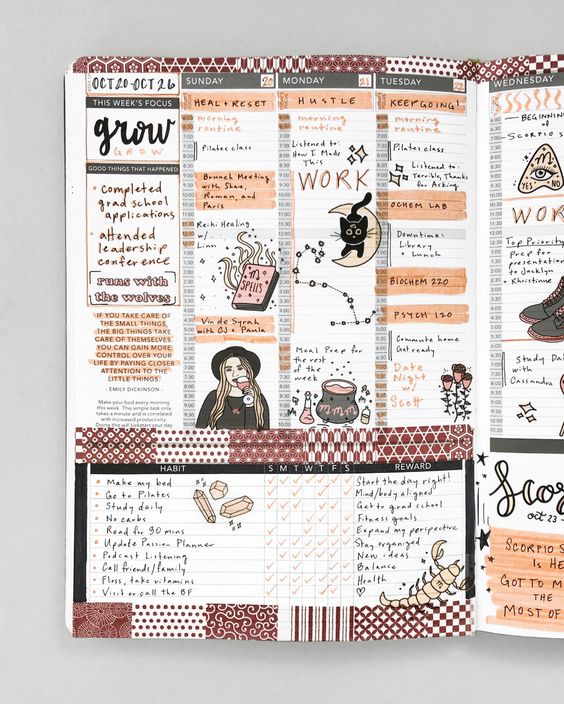 OCT 20-OCT 26
THIS WEEK'S FOCUS
grow
GROW
GOOD THINGS THAT HAPPENED
• Completed
grad school
applications
• attended
leadership
conference
runs with
the wolves
IF YOU TAKE CARE OF
THE SMALL THINGS,
THE BIG THINGS TAKE
CARE OF THEMSELVES.
YOU CAN GAIN MORE
CONTROL OVER YOUR
LIFE BY PAYING CLOSER
ATTENTION TO THE
LITTLE THINGS.
- EMILY DICKINSON -
Make your bed every morning
this week. This simple task only
takes a minute and is correlated
with increased productivity.
Doing this will kickstart your day
SUNDAY 20
HEAL + RESET
morning
routine
Pilates class
Brunch Meeting
with Shae,
Roman, and
Paris
Reiki Healing
w/
Linn
M
SPELLS
Vin de Syrah
with CJ + Paula
MONDAY 21
HUSTLE
morning
routine
Listened to:
How I Made
This
WORK
Meal Prep for
the rest of
the week
TUESDAY 22
KEEP GOING!
morning
routine
Pilates class
Listened to:
Terrible, Thanks
for Asking
OCHEM LAB
Downtime:
Library
+ Lunch
BIOCHEM 220
PSYCH 120
Commute home
Get ready
Date
Night
w/
Scott
WEDNESDAY
BEGINNING
of
SCORPIO S
M
YES NO
WOR
Top Priority
Prep for
presentation
to Jacklyn
+ Khristinne
Study Da
with
Cassandra
HABIT S M T W T F S REWARD
• Make my bed Start the day right!
• Go to Pilates Mind/body aligned
• Study daily Get to grad school
• No carbs Fitness goals
• Read for 30 mins Expand my perspective
• Update Passion Planner Stay organized
• Podcast Listening New ideas
• Call friends/family Balance
• Floss, take vitamins Health
• Visit or call the BF ♡
Scor
oct 23 -
SCORPIO S
IS HE
GOT TO M
THE
MOST OF